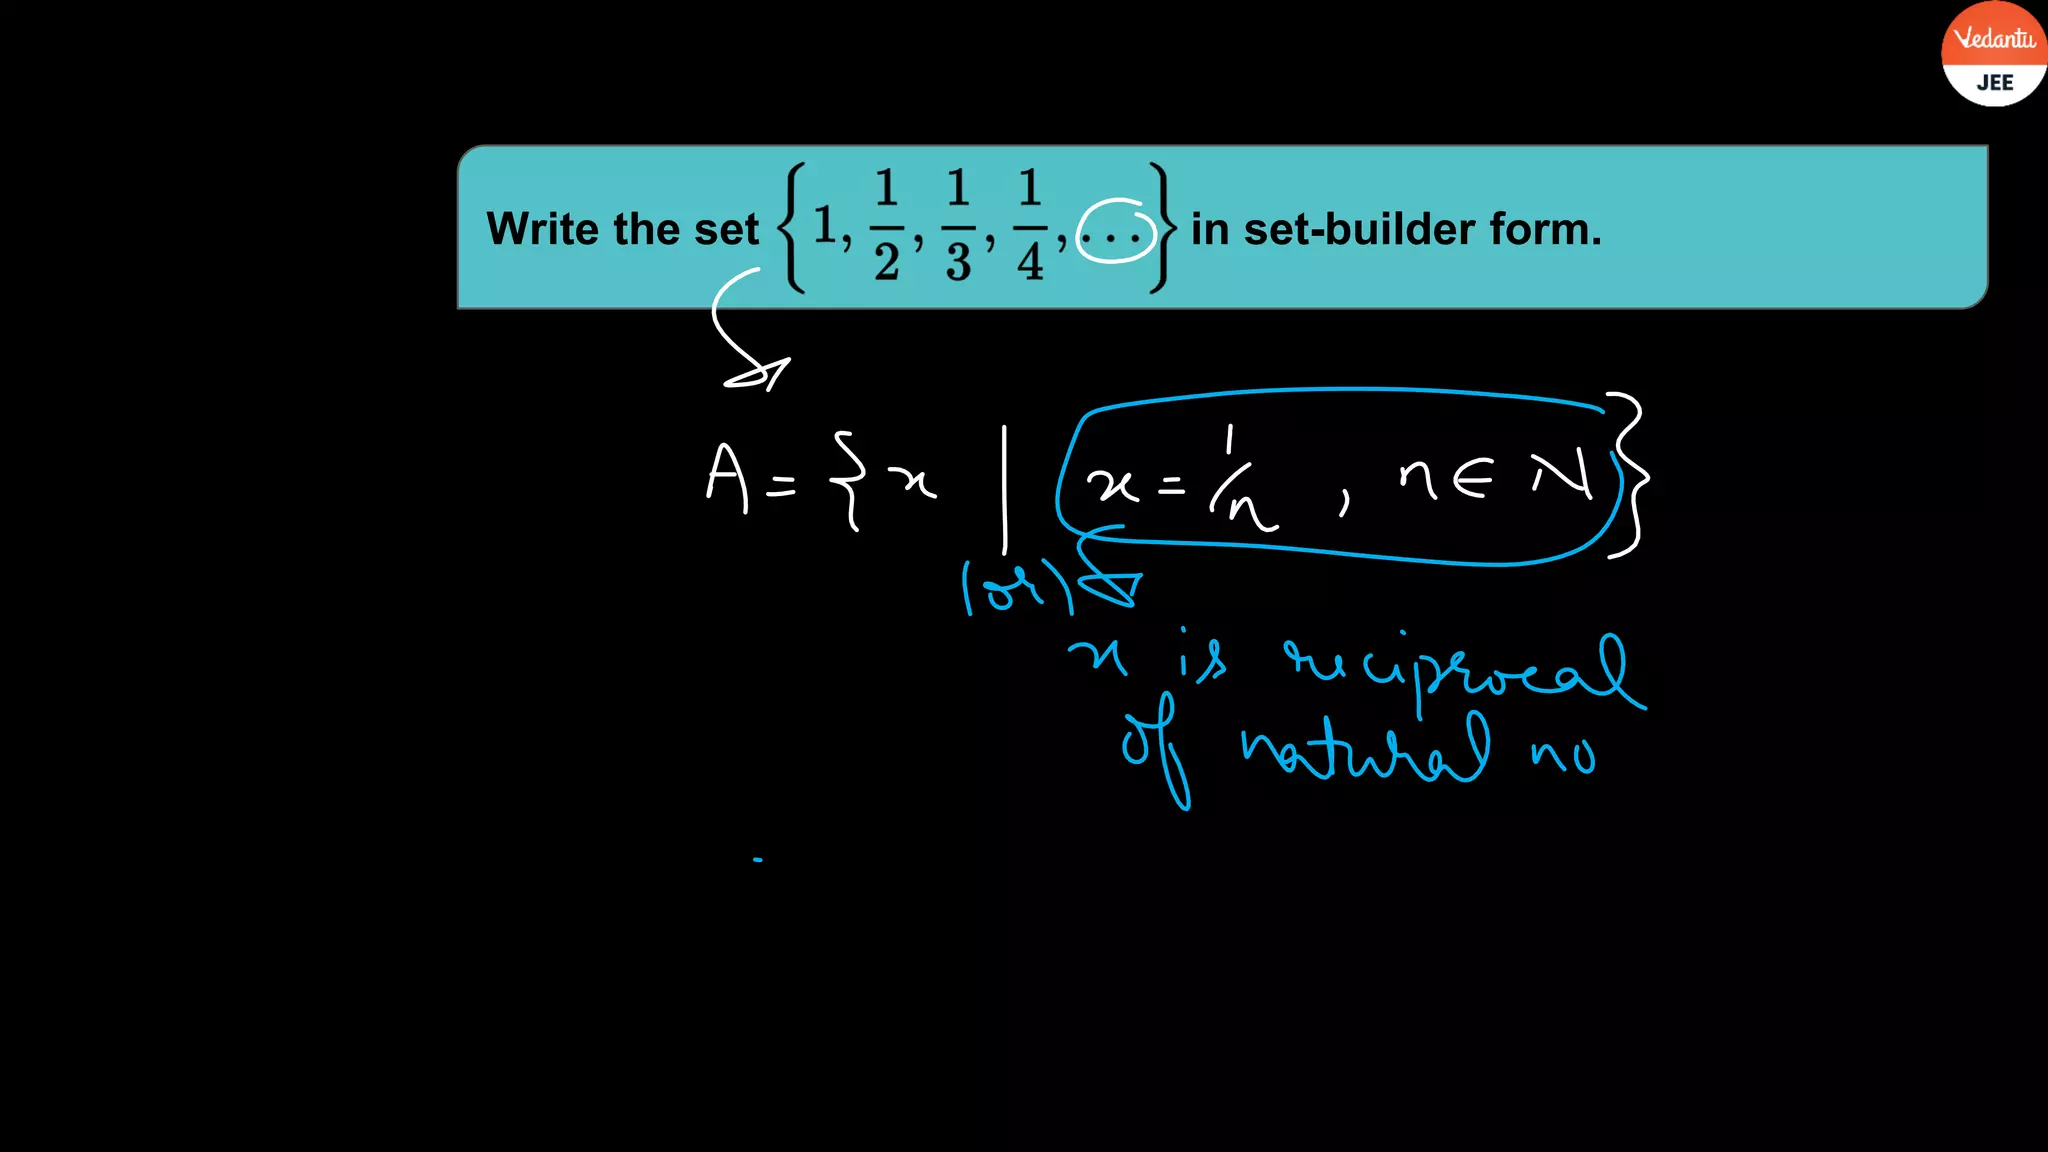 Vedantu
JEE
Write the set {1, 1/2, 1/3, 1/4, ...} in set-builder form.
A = {x | x = 1/n , n ∈ N}
(or)
x is reciprocal
of natural no